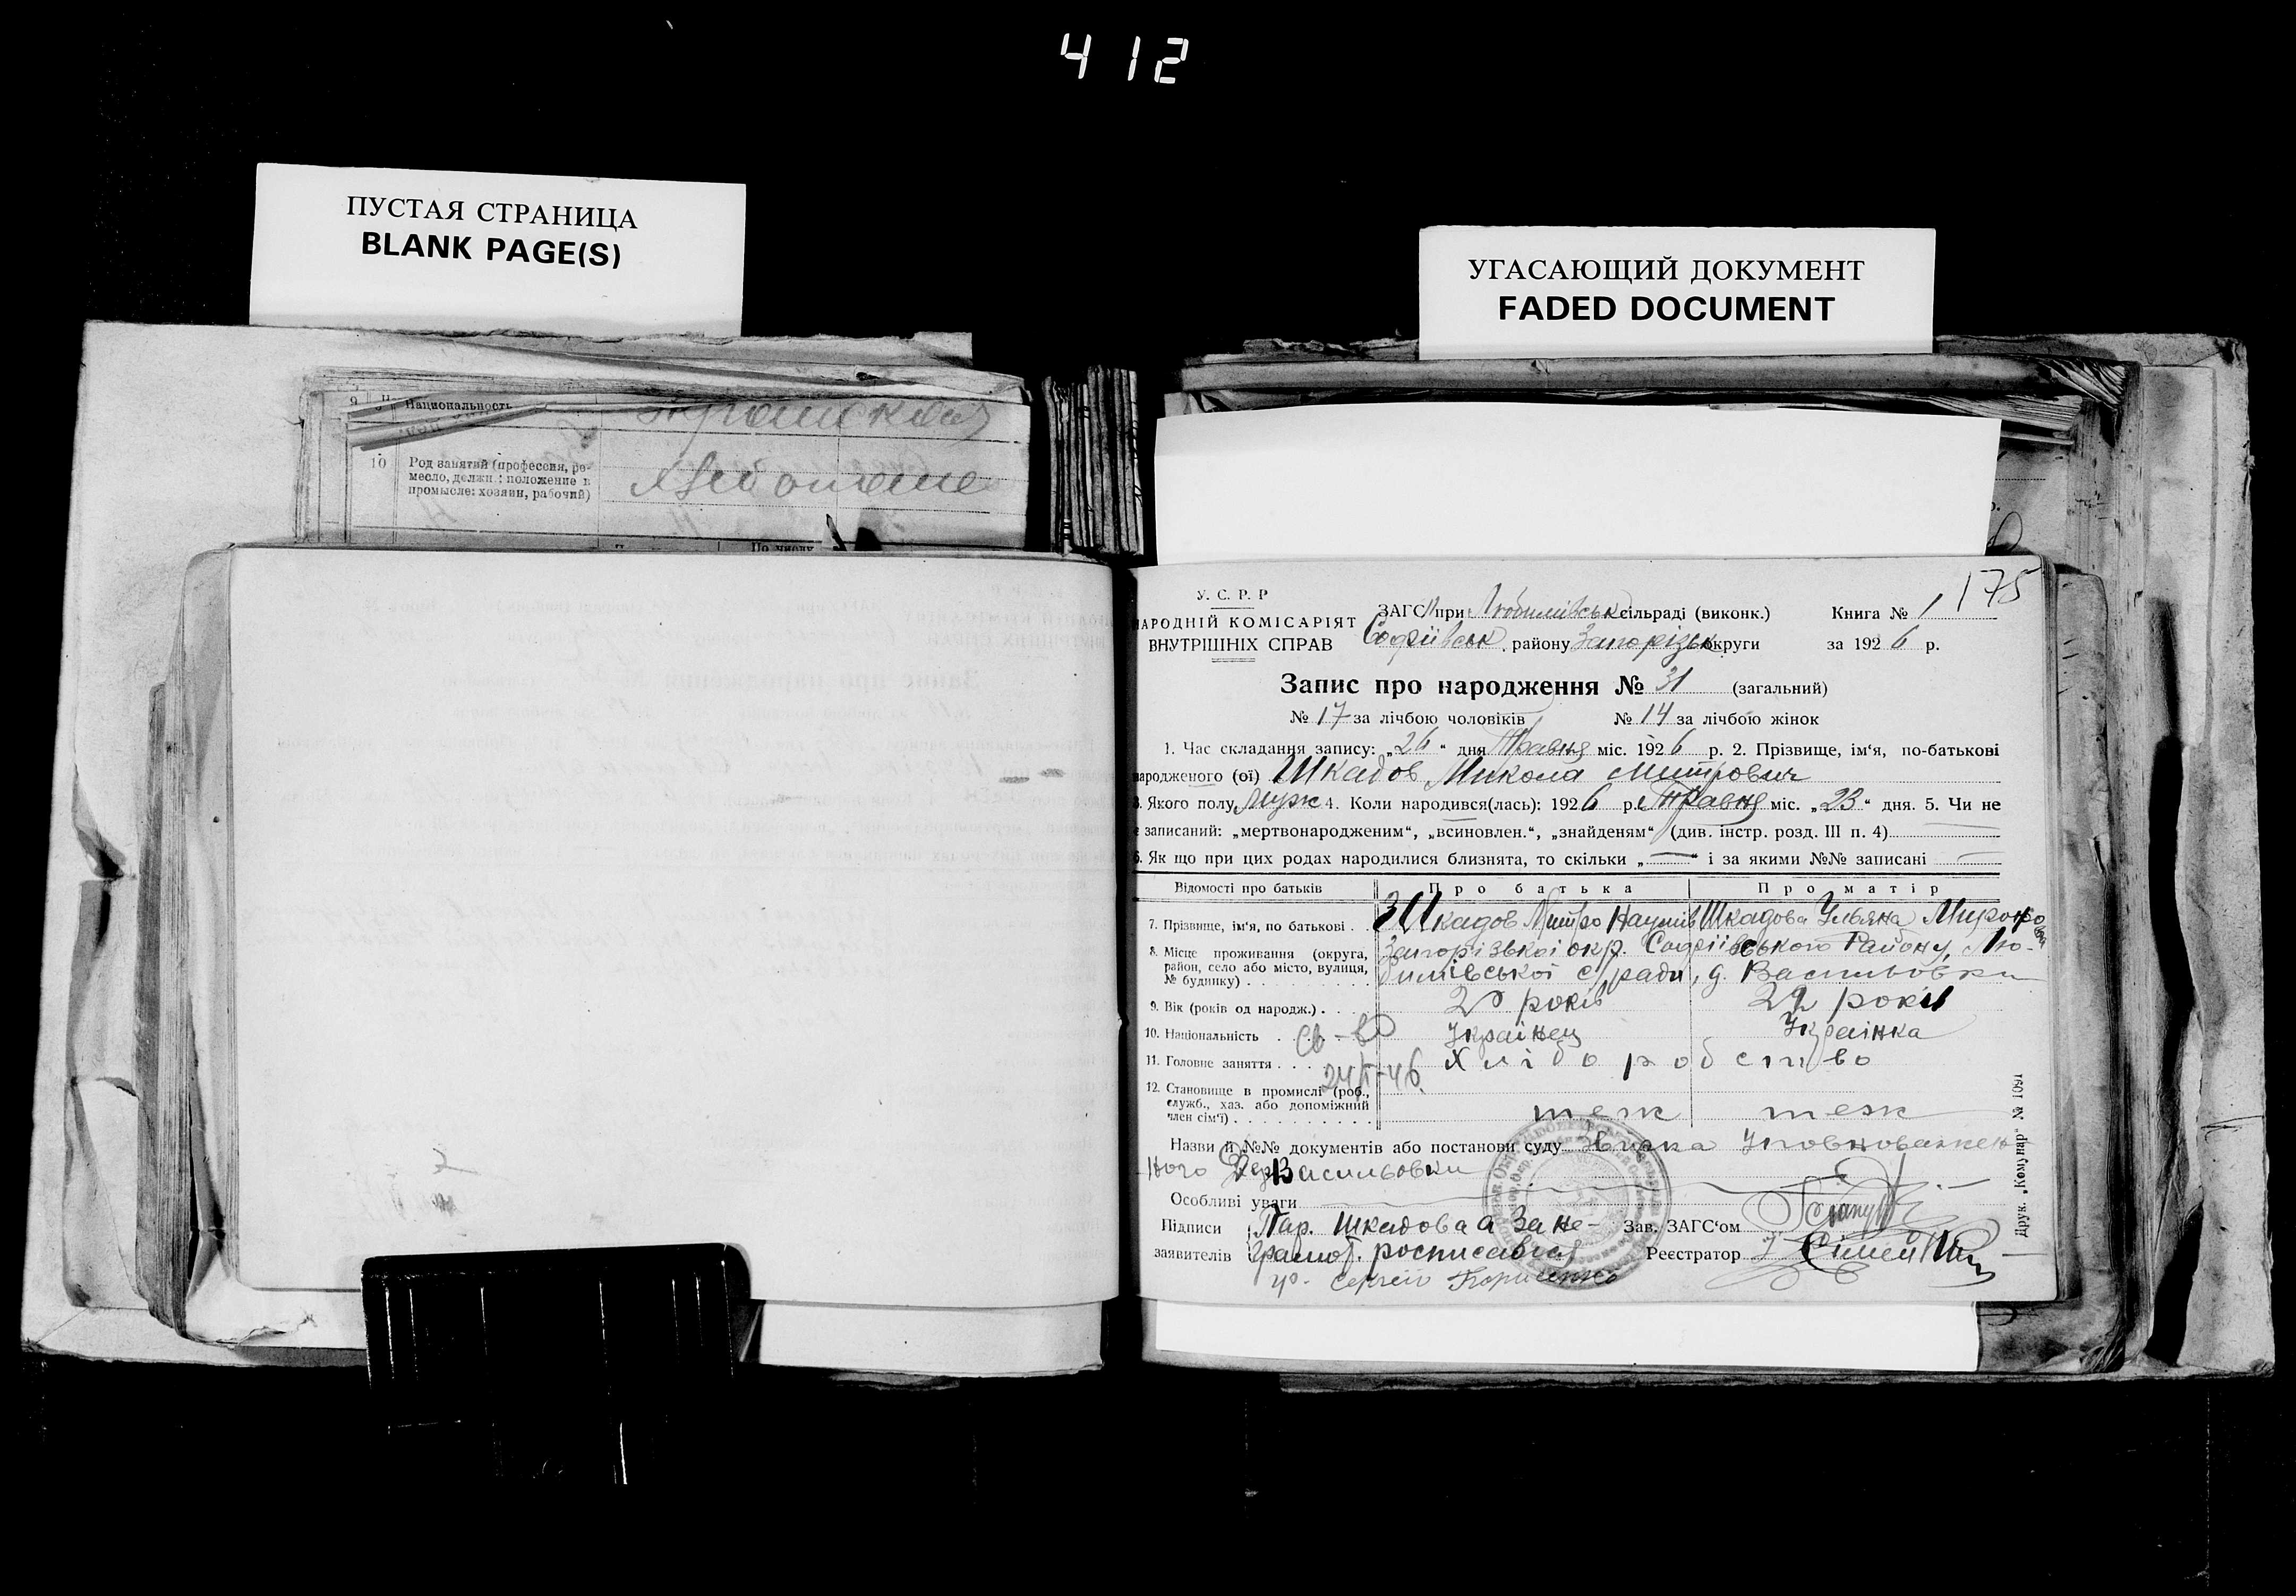 412
ПУСТАЯ СТРАНИЦА
BLANK PAGE(S)
УГАСАЮЩИЙ ДОКУМЕНТ
FADED DOCUMENT
9 Национальность
10 Род занятий (профессия, ре-
месло, должн.: положение в
промысле: хозяин, рабочий)
175
У. С. Р. Р
НАРОДНІЙ КОМІСАРІЯТ
ВНУТРІШНІХ СПРАВ
ЗАГС при Любимівськ сільраді (виконк.) Книга № 1
Софіївськ. району Запорізьк округи за 1926 р.
Запис про народження № 31 (загальний)
№ 17 за лічбою чоловіків № 14 за лічбою жінок
1. Час складання запису: „26“ дня Травня міс. 1926 р. 2. Прізвище, ім‘я, по-батькові
народженого (ої) Шкадов Микола Митрович
3. Якого полу Муж 4. Коли народився(лась): 1926 р. Травня міс. „23“ дня. 5. Чи не
є записаний: „мертвонародженим“, „всиновлен.“, „знайденям“ (див. інстр. розд. III п. 4)
6. Як що при цих родах народилися близнята, то скільки „—“ і за якими №№ записані —
Відомості про батьків Про батька Про матір
7. Прізвище, ім‘я, по батькові . . Шкадов Митро Наумів Шкадова Ульяна
8. Місце проживання (округа,
район, село або місто, вулиця,
№ будинку) . . . . . . . . . .
Запорізької окр. Софіївського Району, Лю-
бимівської с/ради, д. Васильовки
9. Вік (років од народж.) . . . 20 років 22 роки
10. Національність . Українец Українка
11. Головне заняття . . . Хліборобство
12. Становище в промислі (роб.,
служб., хаз. або допоміжний
член сім‘ї) . . . . . . . . . .
теж теж
Св-во
Назви й №№ документів або постанови суду Уповноважен-
ного Дер Васильовки
Особливі уваги
Підписи Шкадова а за не-
заявителів грамот. росписався
Сергій Борисенко
Зав. ЗАГС‘ом
Реєстратор
Друк. „Комунар“ № 1091